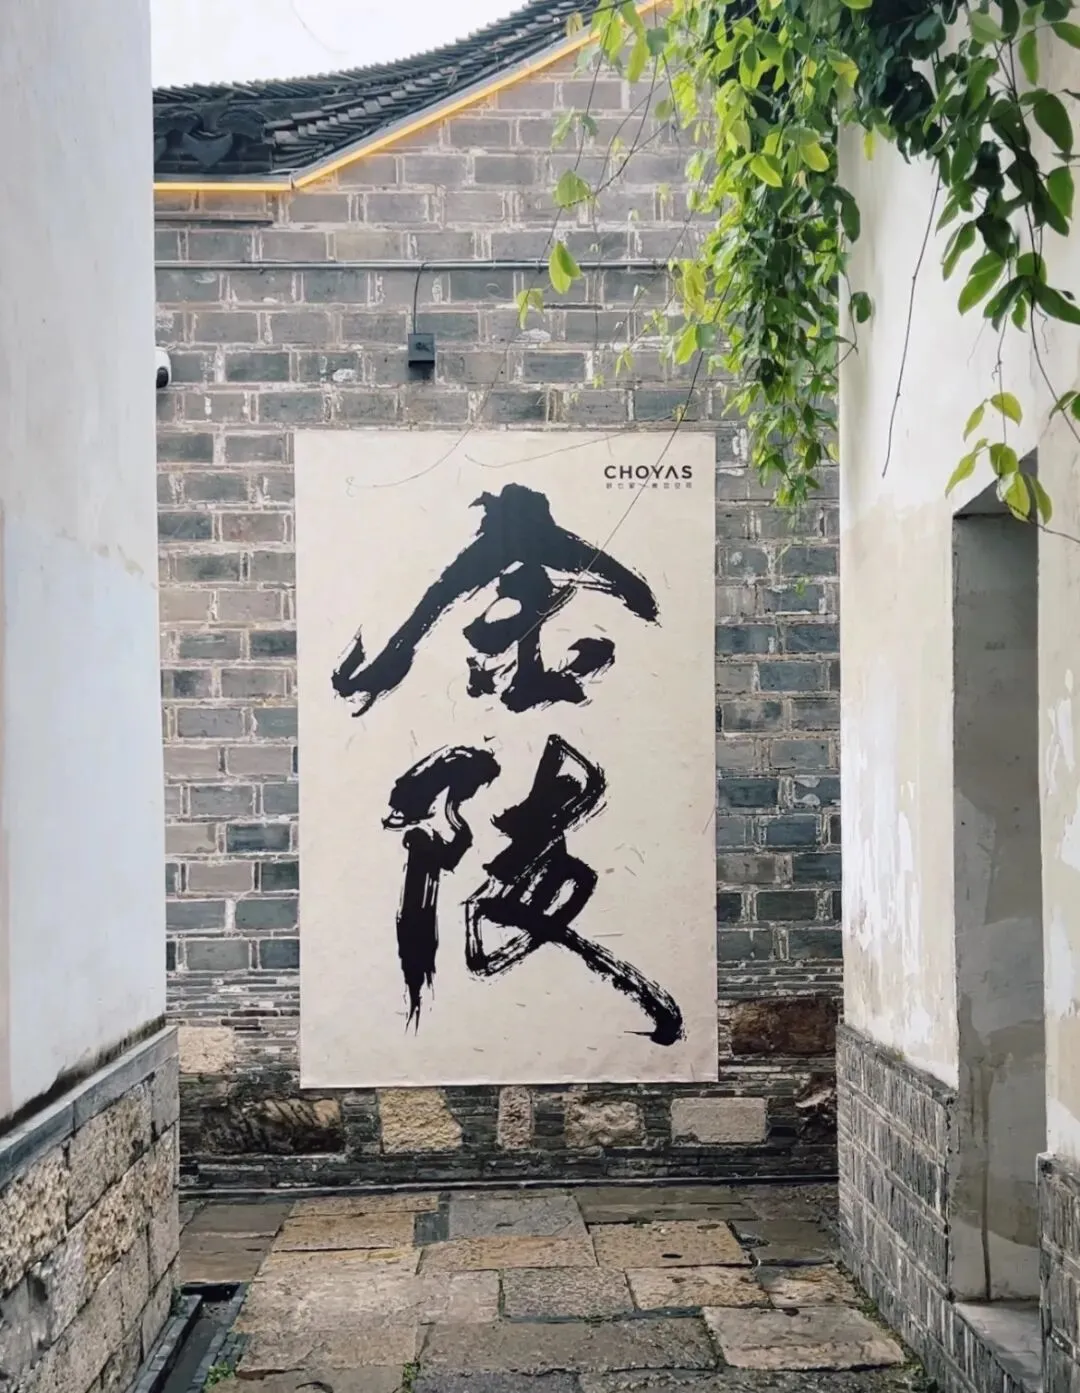 CHOYAS
金
陵